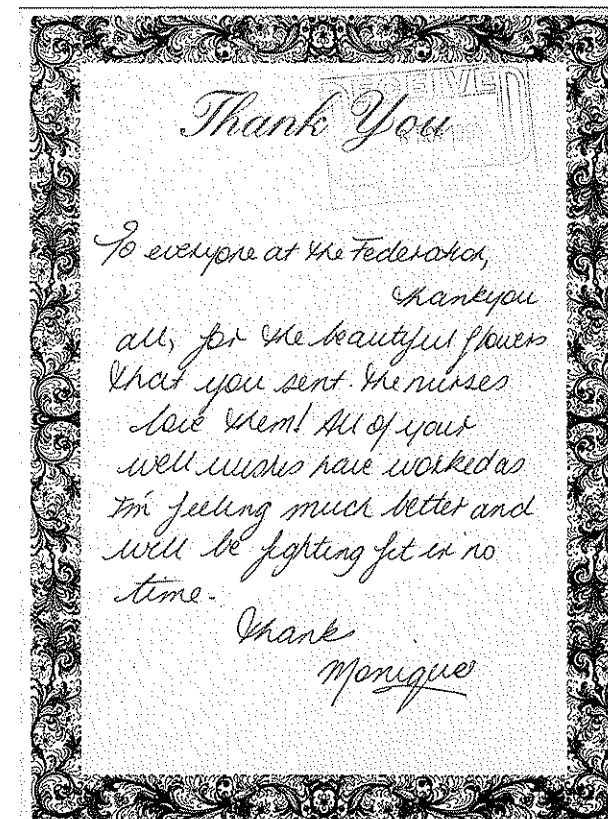 RECEIVED
Thank You
To everyone at the Federation,
thankyou
all, for the beautiful flowers
that you sent. The nurses
love them! All of your
well wishes have worked as
I'm feeling much better and
will be fighting fit in no
time.
Thanks
Monique